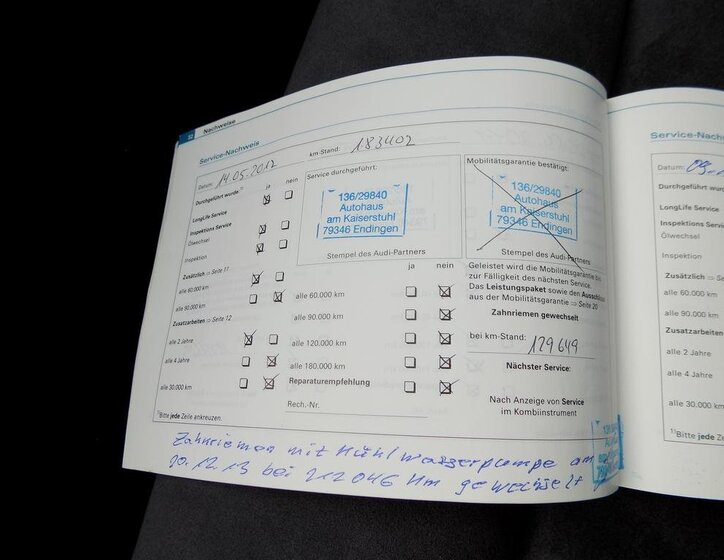 52 Nachweise
Service-Nachweis
Datum: 14.05.2012
km-Stand: 183402
ja nein
Durchgeführt wurde:¹⁾
LongLife Service
Inspektions Service
Ölwechsel
Inspektion
Zusätzlich ⇒ Seite 11
alle 60.000 km
alle 90.000 km
Zusatzarbeiten ⇒ Seite 12
alle 2 Jahre
alle 4 Jahre
alle 30.000 km
¹⁾Bitte jede Zeile ankreuzen.
Service durchgeführt:
136/29840
Autohaus
am Kaiserstuhl
79346 Endingen
Stempel des Audi-Partners
ja nein
alle 60.000 km
alle 90.000 km
alle 120.000 km
alle 180.000 km
Reparaturempfehlung
Rech.-Nr.
Mobilitätsgarantie bestätigt:
136/29840
Autohaus
am Kaiserstuhl
79346 Endingen
Stempel des Audi-Partners
Geleistet wird die Mobilitätsgarantie bis
zur Fälligkeit des nächsten Service.
Das Leistungspaket sowie den Ausschluss
aus der Mobilitätsgarantie ⇒ Seite 20
Zahnriemen gewechselt
bei km-Stand: 129649
Nächster Service:
Nach Anzeige von Service
im Kombiinstrument
Zahnriemen mit Kühlwasserpumpe am
20.12.13 bei 212046 Km gewechselt
Service-Nachweis
Datum:
Durchgeführt
LongLife Service
Inspektions Service
Ölwechsel
Inspektion
Zusätzlich ⇒ Seite
alle 60.000 km
alle 90.000 km
Zusatzarbeiten
alle 2 Jahre
alle 4 Jahre
alle 30.000 km
¹⁾Bitte jede Zeile